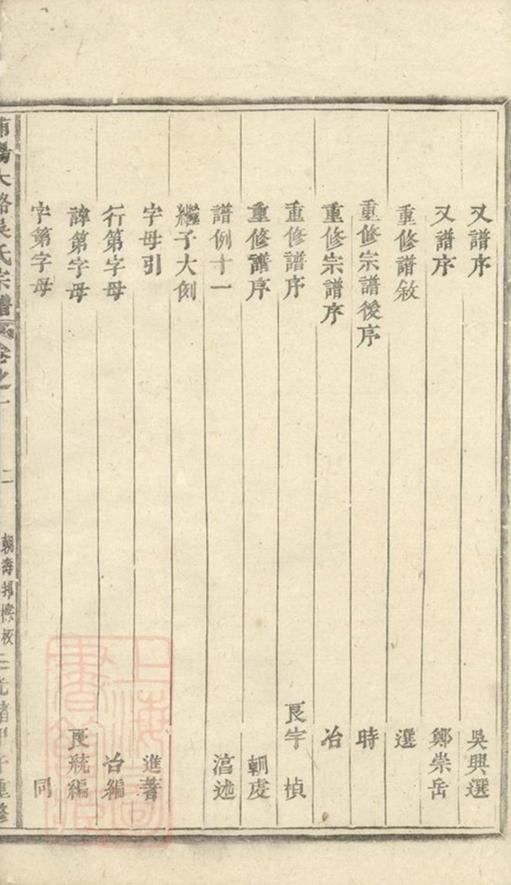 又譜序 吳興選
又譜序 鄭崇岳
重修譜敘 選
重修宗譜後序 時
重修宗譜序 冶
重修譜序 良宇 楨
重修譜序 朝虔
譜例十一 濆述
繼子大例
字母引 進著
行第字母 冶編
諱第字母 良統編
字第字母 同
大路吳氏宗譜 卷之一 二
光緒甲子重修
上海圖書館藏